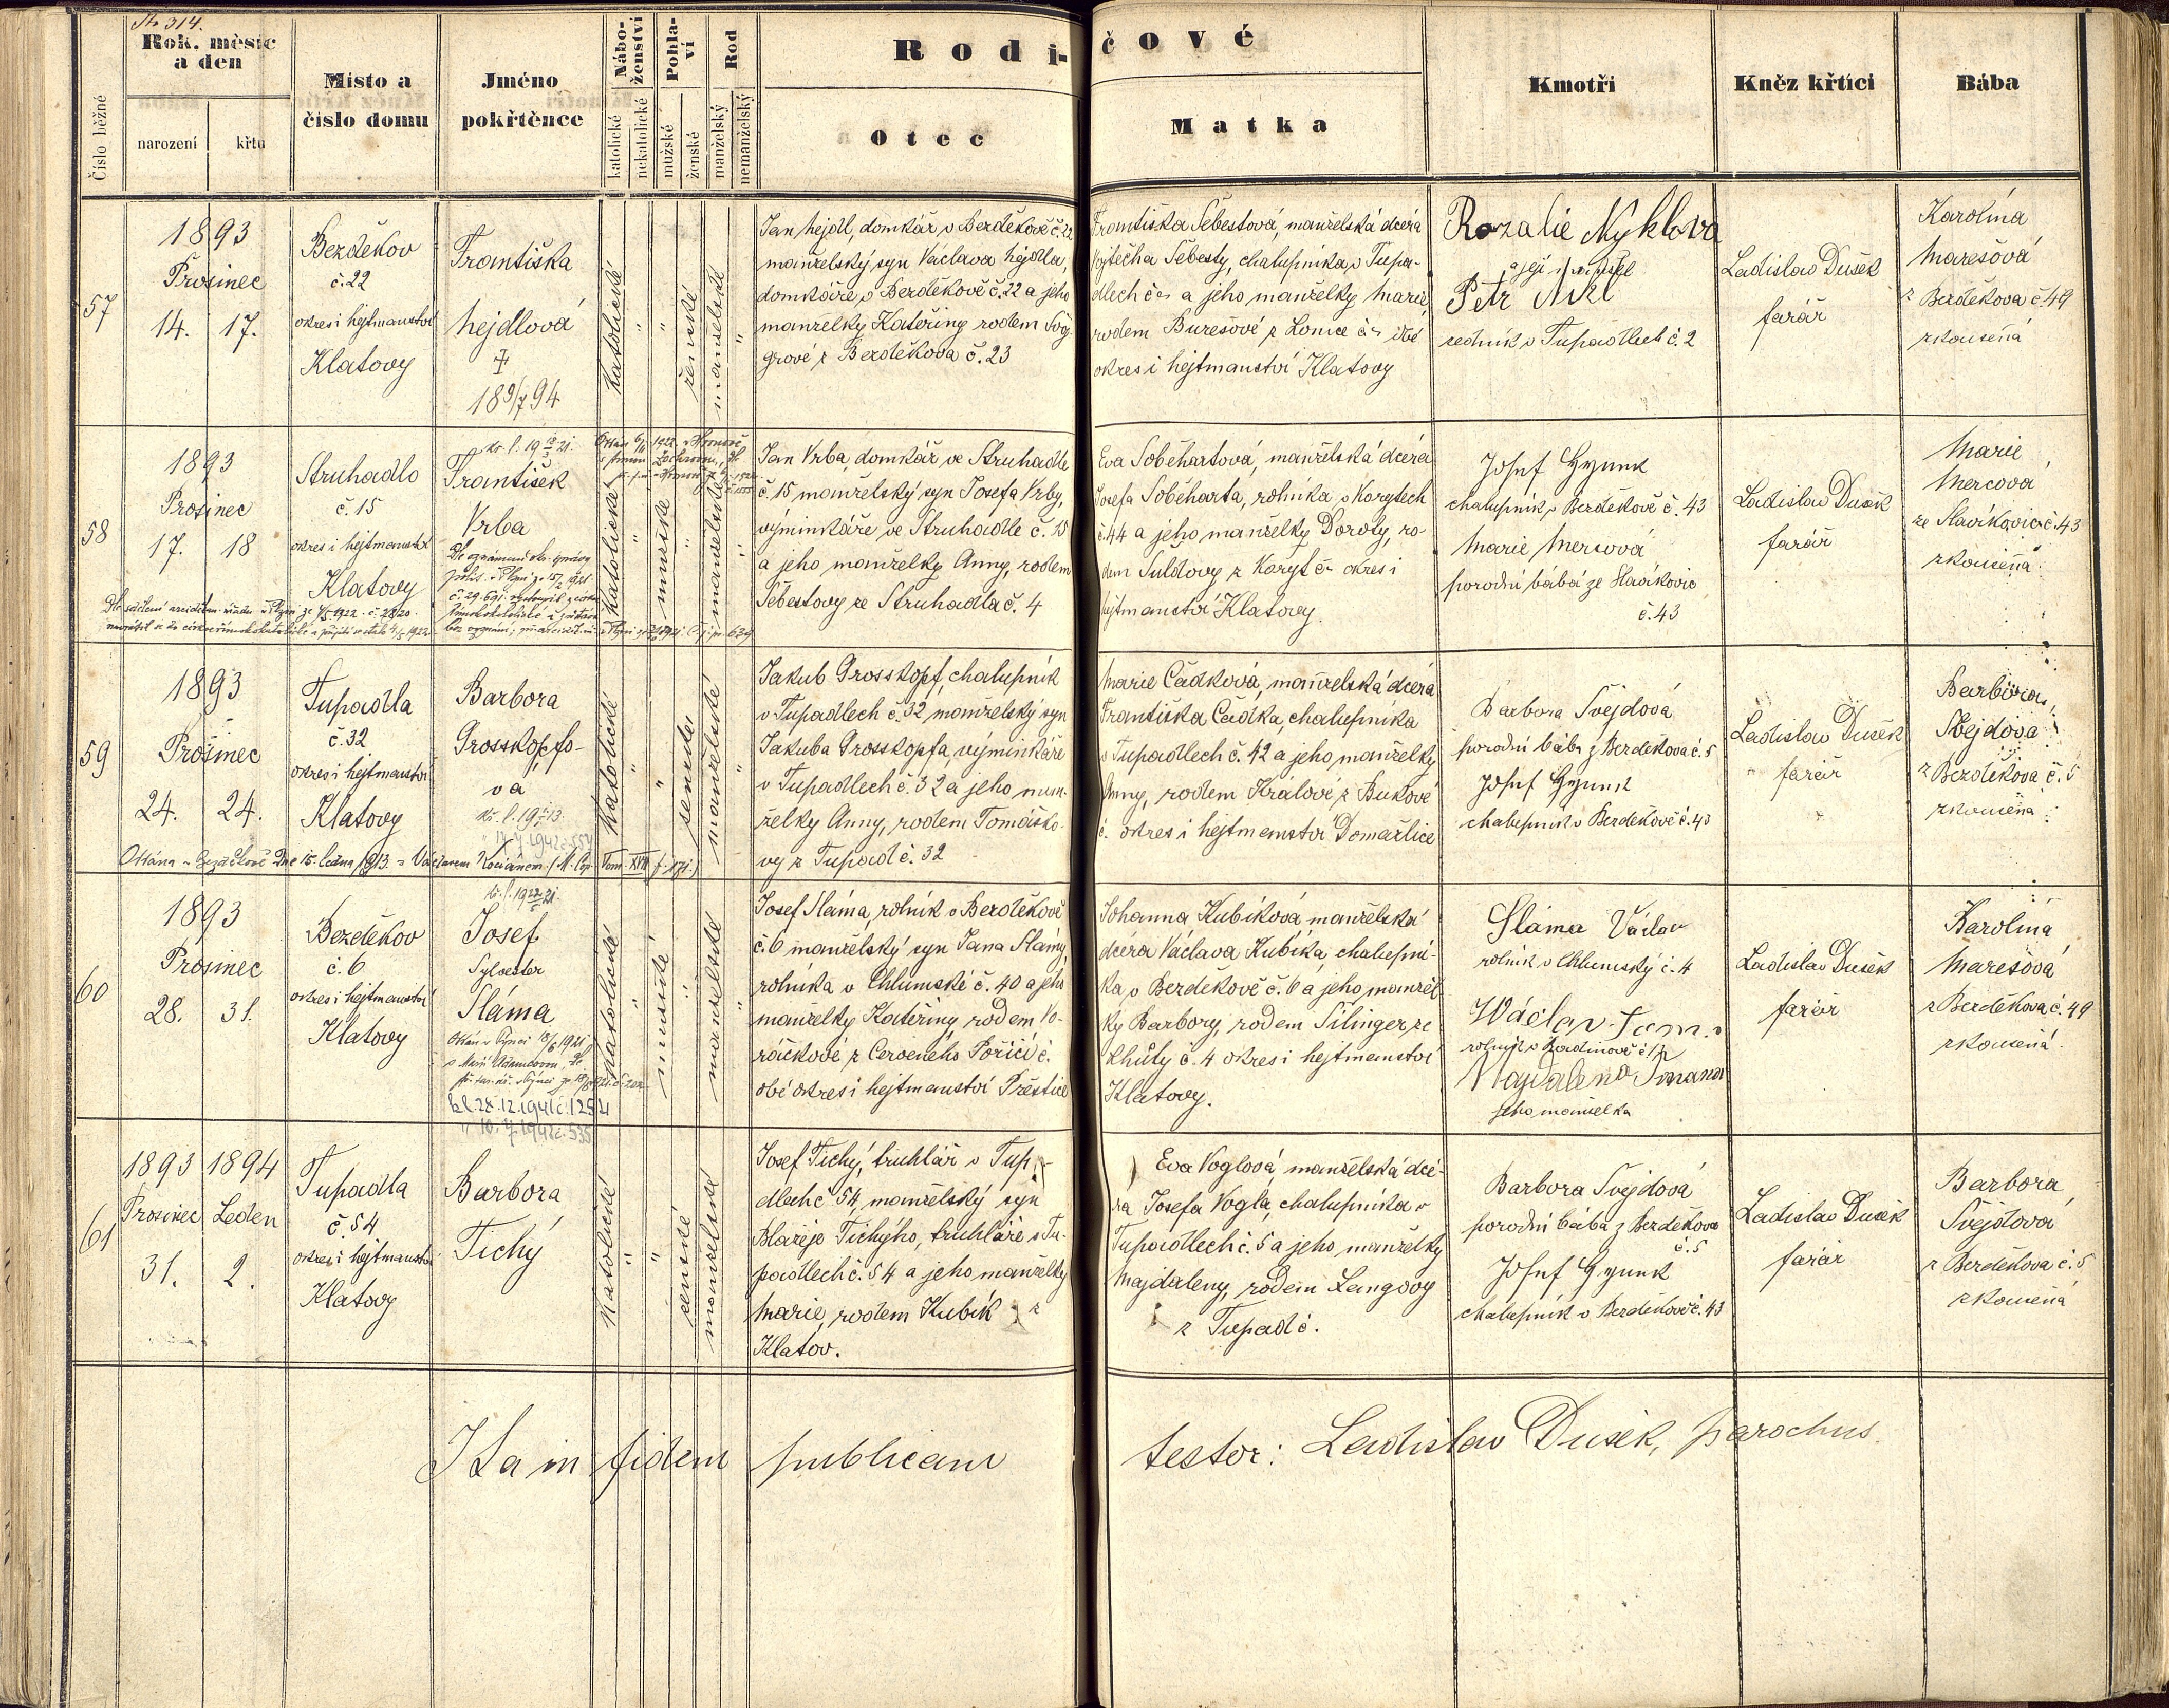 Str. 314.
Číslo běžné
Rok, měsíc
a den
narození
křtu
Místo a
číslo domu
Jméno
pokřtěnce
Nábo-
ženství
katolické
nekatolické
Pohla-
ví
mužské
ženské
Rod
manželský
nemanželský
Rodi-
čové
Otec
Matka
Kmotři
Kněz křtící
Bába
57
1893
Prosinec
14. 17.
Bezděkov
č. 22
okres i hejtmanství
Klatovy
Františka
Hejdlová
‡
18 9/7 94
katolické
"
"
ženské
manželské
"
Jan Hejdl, domkář v Bezděkově č. 22
manželský syn Václava Hejdla,
domkáře v Bezděkově č. 22 a jeho
manželky Kateřiny rodem
grové z Bezděkova č. 23
Františka Šebestová, manželská dcera
Vojtěcha Šebesty, chalupníka v Tupa-
dlech č. a jeho manželky Marie,
rodem Burešové z
okres i hejtmanství Klatovy
Rozalie Nyklova
a její manžel
Petr Nikl
sedník v Tupadlech č. 2
Ladislav Dušek
farář
Karolína
Marešová
z Bezděkova č. 49
zkoušená
58
1893
Prosinec
17. 18
Struhadlo
č. 15
okres i hejtmanství
Klatovy
František
Vrba
katolické
"
mužské
"
manželské
"
Jan Vrba, domkář ve Struhadle
č. 15 manželský syn Josefa Vrby,
výminkáře ve Struhadle č. 15
a jeho manželky Anny, rodem
Šebestovy ze Struhadla č. 4
Eva Soběhartová, manželská dcera
Josefa Soběharta, rolníka v Korytech
č. 44 a jeho manželky Doroty, ro-
dem Suldovy z Koryt č. okres i
hejtmanství Klatovy.
Josef Hynek
chalupník v Bezděkově č. 43
Marie Mercová
porodní bába ze Slavíkovic
č. 43
Ladislav Dušek
farář
Marie
Mercová
ze Slavíkovic č. 43
zkoušená
59
1893
Prosinec
24. 24.
Tupadla
č. 32
okres i hejtmanství
Klatovy
Barbora
Grosskopfo-
vá
katolické
"
"
ženské
manželské
"
Oddána v Bezděkově dne 15. ledna 1913 s Václavem Kociánem (M. Cop. Tom. XVII f. 171.)
Jakub Grosskopf, chalupník
v Tupadlech č. 32 manželský syn
Jakuba Grosskopfa, výminkáře
v Tupadlech č. 32 a jeho man-
želky Anny, rodem Tomáško-
vy z Tupadl č. 32
Marie Čadková, manželská dcera
Františka Čadka, chalupníka
v Tupadlech č. 42 a jeho manželky
Anny, rodem Králové z Bukové
č. okres i hejtmanství Domažlice
Barbora Švejdová
porodní bába z Bezděkova č. 5
Josef Hynek
chalupník v Bezděkově č. 43
Ladislav Dušek
farář
Barbora
Švejdová
z Bezděkova č. 5
zkoušená
60
1893
Prosinec
28. 31.
Bezděkov
č. 6
okres i hejtmanství
Klatovy
Josef
Sylvester
Sláma
kl. 28.12.1941 č. 1252
" 10.7.1942 č. 535
katolické
"
mužské
"
manželské
"
Josef Sláma, rolník v Bezděkově
č. 6 manželský syn Jana Slámy,
rolníka v Chlumské č. 40 a jeho
manželky Kateřiny, rodem Vo-
ráčkové z Červeného Poříčí č.
obé okres i hejtmanství Přeštice
Johanna Kubíková, manželská
dcera Václava Kubíka, chalupní-
ka v Bezděkově č. 6 a jeho manžel
ky Barbory, rodem Šilinger ze
Lhůty č. 4 okres i hejtmanství
Klatovy.
Sláma Václav
rolník v Chlumský č. 4
Wáclav
Magdalena
jeho manželka
Ladislav Dušek
farář
Karolína
Marešová
z Bezděkova č. 49
zkoušená
61
1893 1894
Prosinec Leden
31. 2.
Tupadla
č. 54
okres i hejtmanství
Klatovy
Barbora
Tichý
katolické
"
"
ženské
manželské
Josef Tichý, truhlář v Tupa-
dlech č. 54, manželský syn
Blažeje Tichýho, truhláře v Tu-
padlech č. 54 a jeho manželky
Marie, rodem Kubík z
Klatov.
Eva Voglová, manželská dce-
ra Josefa Vogla, chalupníka v
Tupadlech č. 5 a jeho manželky
Majdaleny, rodem Langovy
z Tupadl č.
Barbora Švejdová
porodní bába z Bezděkova
č. 5
Josef Hynek
chalupník v Bezděkově č. 43
Ladislav Dušek
farář
Barbora
Švejdová
z Bezděkova č. 5
zkoušená
Ita in fidem publicam testor: Ladislav Dušek, parochus.